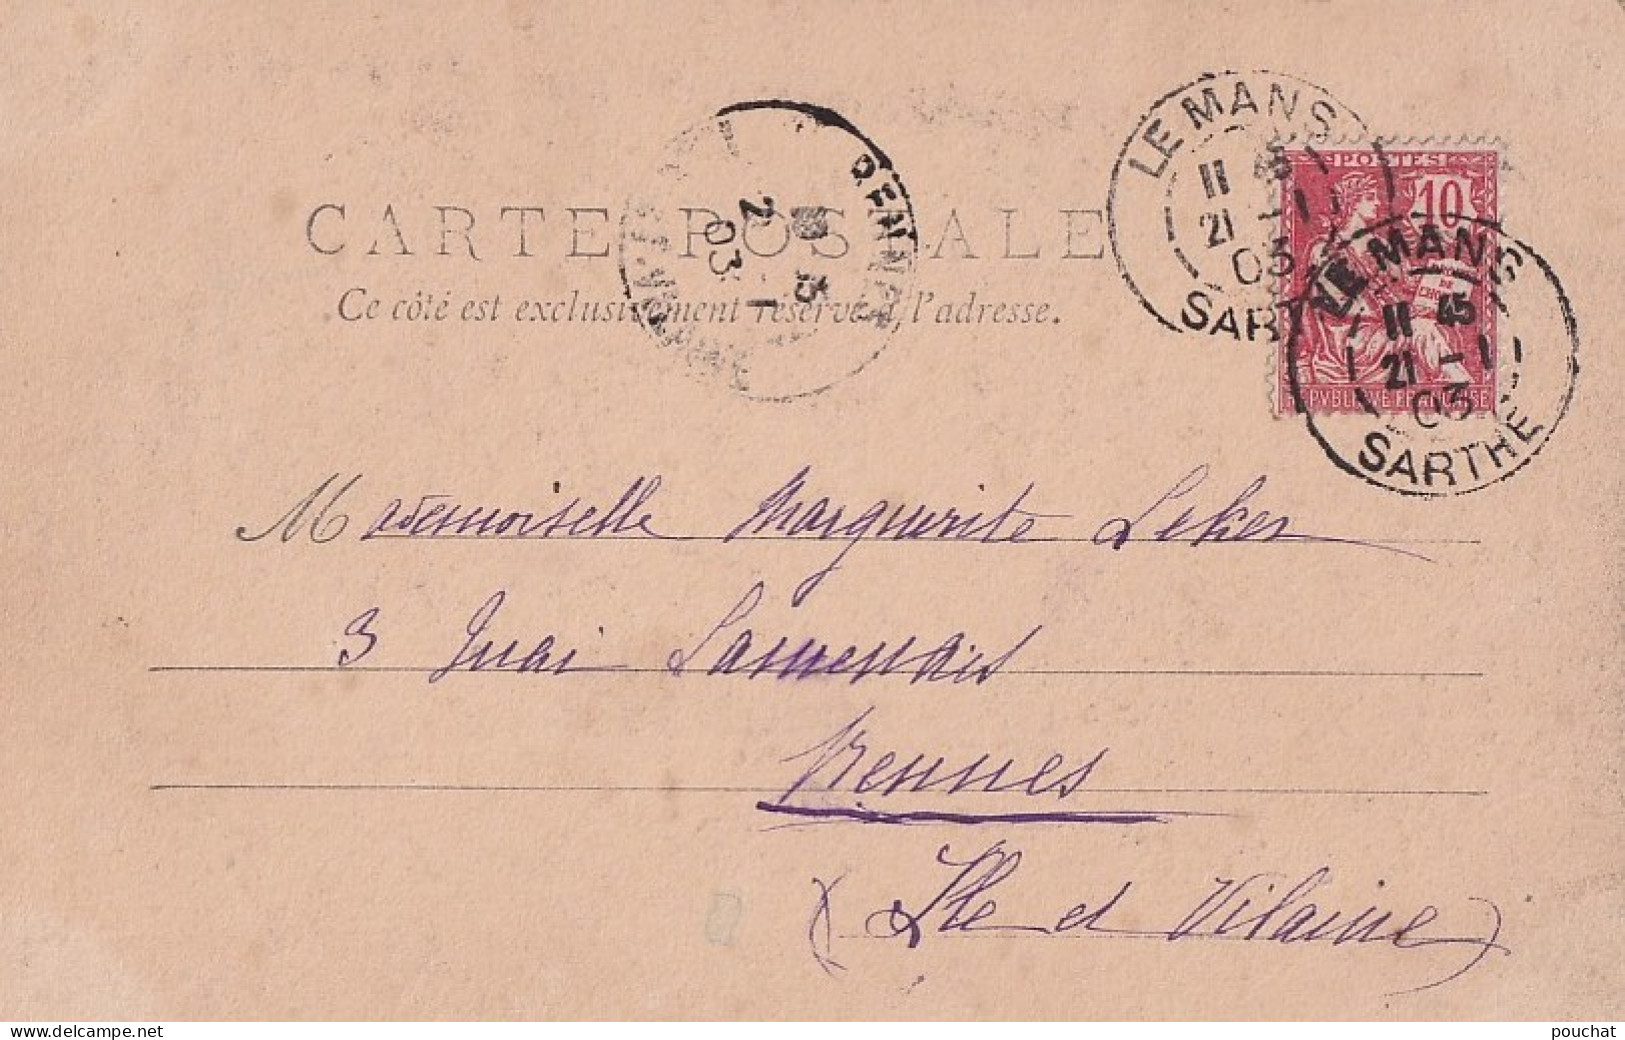 CARTE POSTALE
Ce côté est exclusivement réservé à l'adresse.
LE MANS
11 45
21 - 1
03
SARTHE
POSTES
10
REPVBLIQVE FRANÇAISE
LE MANS
11 45
21 - 1
03
SARTHE
RENNES
03
Mademoiselle Marguerite Leker
3 Quai Lamennais
Rennes
(Ille et Vilaine)
www.delcampe.net
pouchat